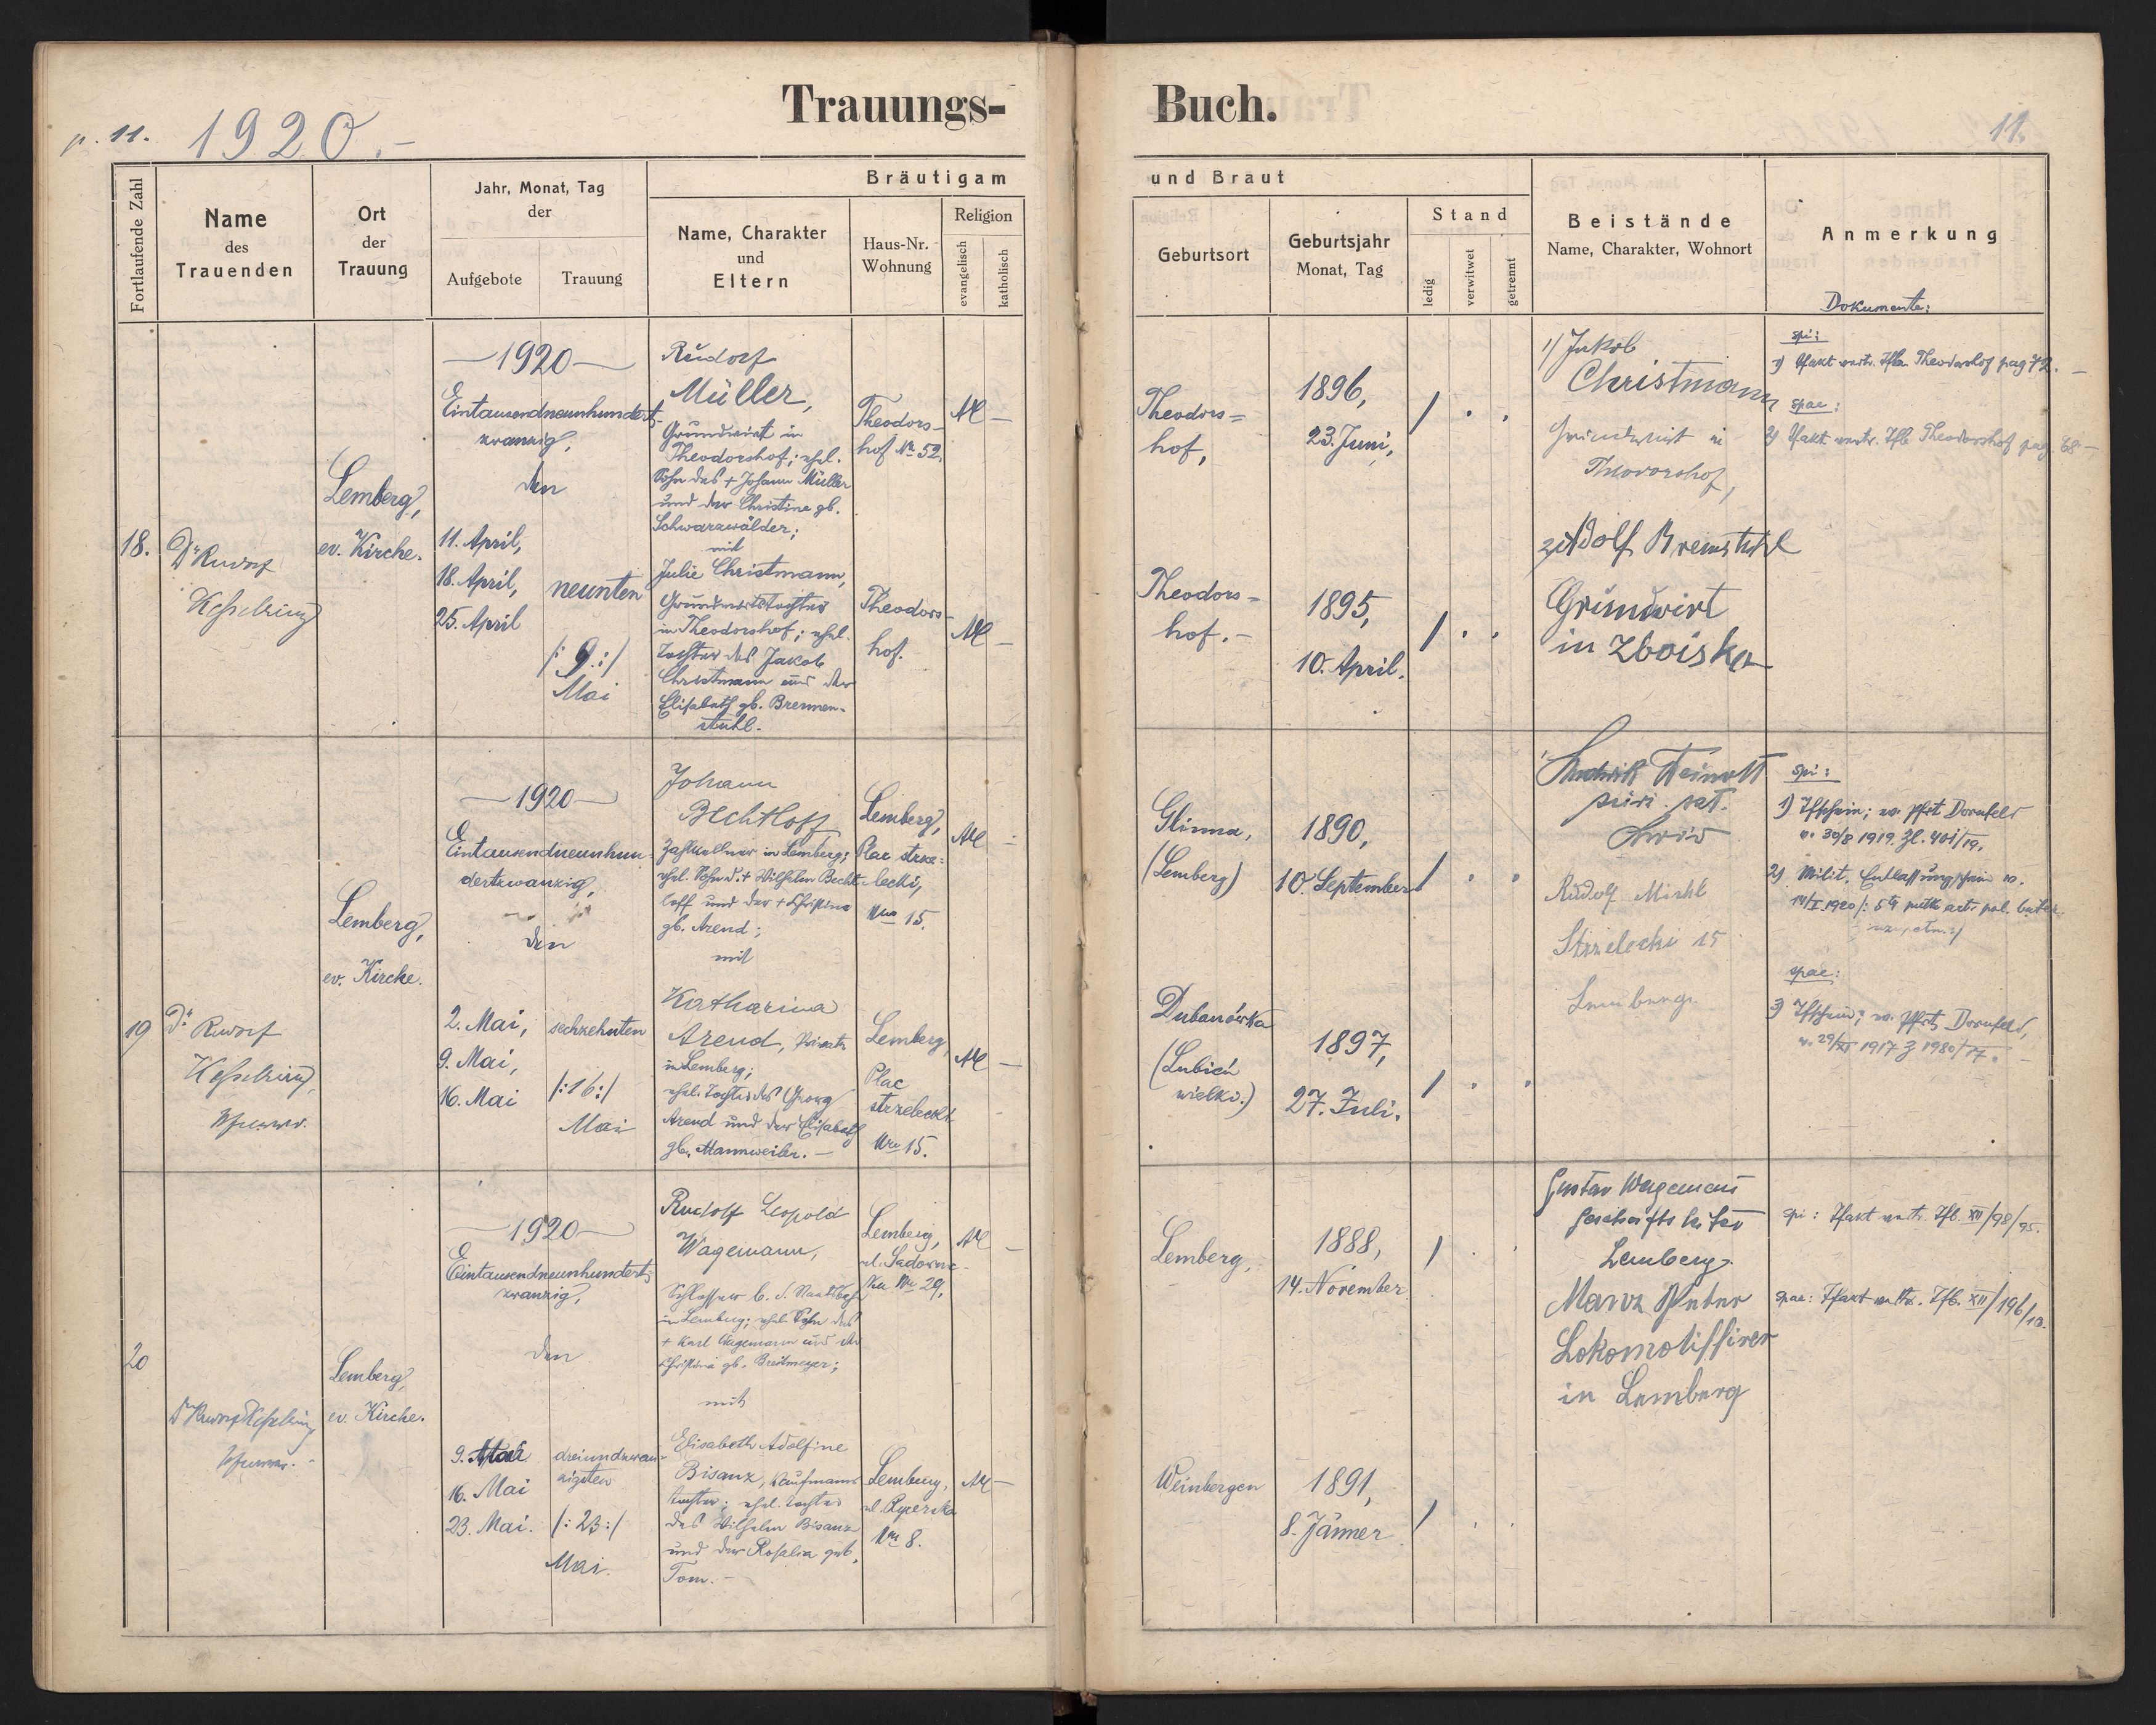 Trauungs-
p. 11. 1920.-
Fortlaufende Zahl
Name
des
Trauenden
Ort
der
Trauung
Jahr, Monat, Tag
der
Aufgebote
Trauung
Bräutigam
Name, Charakter
und
Eltern
Haus-Nr.
Wohnung
Religion
evangelisch
katholisch
18.
Dr Rudolf
Kesselring
Lemberg,
ev. Kirche.
—1920—
Eintausendneunhundert-
zwanzig,
den
11. April,
18. April,
25. April
neunten
/:9.:/
Mai
Rudolf
Müller,
Grundwirt in
Theodorshof; ehel.
Sohn des + Johann Müller
und der Christine gb.
Schwarzwälder;
mit
Julie Christmann,
Grundwirtstochter
in Theodorshof; ehel.
Tochter des Jakob
Christmann und der
Elisabeth gb. Bremen-
stuhl.
Theodors-
hof Nr. 52.
Theodors-
hof.
19
Dr Rudolf
Kesselring
Pfarrer.
Lemberg,
ev. Kirche.
—1920—
Eintausendneunhun-
dertzwanzig,
den
2. Mai,
9. Mai,
16. Mai
sechzehnten
/:16:/
Mai
Johann
Bechtloff
Zahlkellner in Lemberg;
ehel. Sohn d. + Wilhelm Becht-
loff und der + Christine
gb. Arend;
mit
Katharina
Arend, Private
in Lemberg;
ehel. Tochter des Georg
Arend und der Elisabeth
gb. Mannweiler. —
Lemberg,
Plac strze-
lecki,
Nro 15.
Lemberg,
Plac
strzelecki
Nro 15.
20
Dr Rudolf Kesselring
Pfarrer. -
Lemberg,
ev. Kirche.
—1920—
Eintausendneunhundert-
zwanzig,
den
9. Mai
16. Mai
23. Mai.
dreiundzwan-
zigsten
/:23:/
Mai.
Rudolf Leopold
Wagemann,
Schlosser b. d. Staatsbahn
in Lemberg; ehel. Sohn des
+ Karl Wagemann und der
Christine gb. Breitmeyer;
mit
Elisabeth Adolfine
Bisanz, Kaufmanns
tochter; ehel. Tochter
des Wilhelm Bisanz
und der Rosalia geb.
Tom. -
Lemberg,
ul. Sadowni-
cka Nro 29.
Lemberg,
ul. Rycerska
Nro 8.
Buch.
11.
und Braut
Geburtsort
Geburtsjahr
Monat, Tag
Stand
ledig
verwitwet
getrennt
Beistände
Name, Charakter, Wohnort
Anmerkung
Dokumente:
Theodors-
hof,
1896,
23. Juni,
Theodors-
hof.-
1895,
10. April.
1/ Jakob
Christmann
Grundwirt in
Theodorshof,
2/ Adolf Bremstuhl
Grundwirt
in Zboiska
spi:
1) Tfakt vertr. Tfb. Theodorshof pag 72. —
spae:
2) Tfakt vertr. Tfb. Theodorshof pag. 68 —
Glinna,
(Lemberg)
1890,
10. September
Dubanówka
(Lubień
wielki.)
1897,
27. Juli.
Ludwik
Lwów
Rudolf Michl
Strzelecki 15
Lemberg.
spi:
1) Tfschein; ev. Pfrt Dornfeld
v. 30/8 1919. Zl. 401/19.
2) Milit. Entlassungschein v.
spae:
3) Tfschein; ev. Pfrt Dornfeld,
v. 29/XI 1917 Z 1980/17. —
Lemberg,
1888,
14. November
Weinbergen
1891,
8. Jänner
Gustav Wagemann
Geschäftsleiter
Lemberg.
Manz Peter
Lokomotiffirer
in Lemberg
spi: Tfakt vertr. Tfb. XII/98/95.
spae: Tfakt vertr. Tfb. XII/196/10.